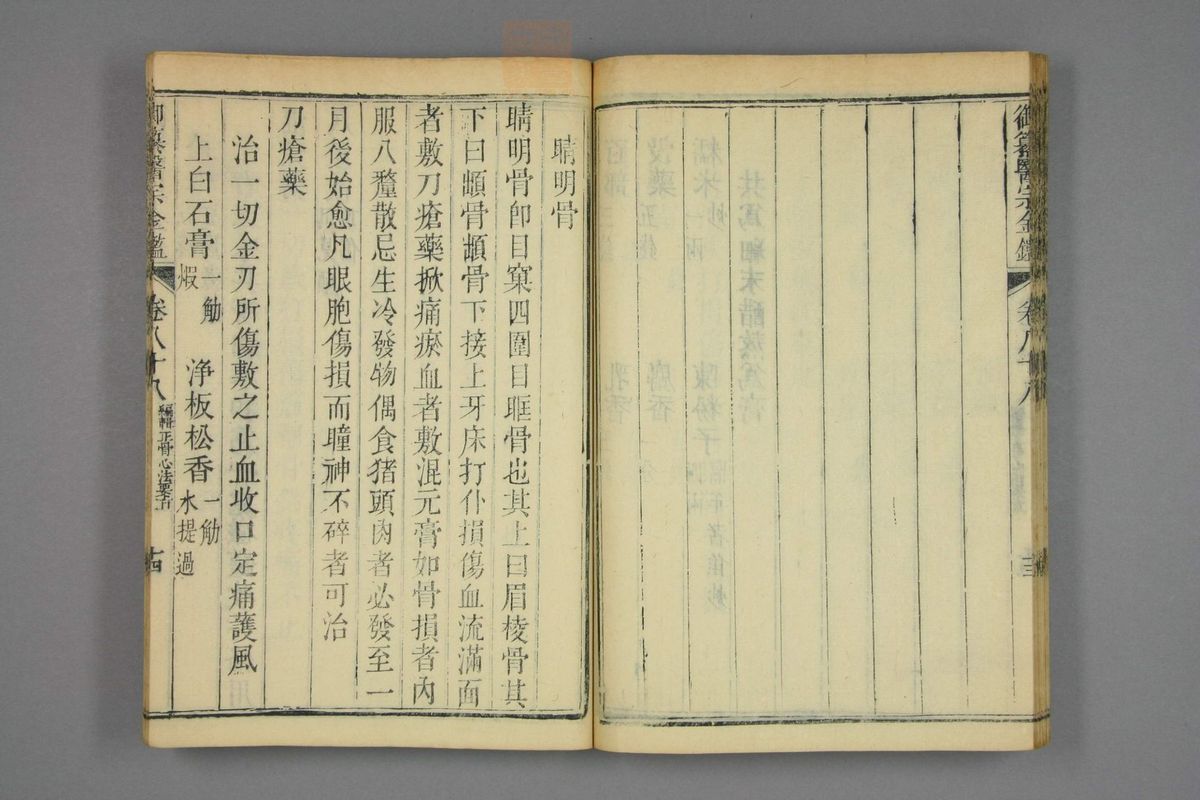 御纂醫宗金鑑
卷八十八
睛明骨
睛明骨卽目窠四圍目眶骨也其上曰眉棱骨其
下曰䪼骨䪼骨下接上牙床打仆損傷血流滿面
者敷刀瘡藥掀痛瘀血者敷混元膏如骨損者內
服八釐散忌生冷發物偶食猪頭肉者必發至一
月後始愈凡眼胞傷損而瞳神不碎者可治
刀瘡藥
治一切金刃所傷敷之止血收口定痛護風
上白石膏一觔煆 淨板松香一觔水提過
御纂醫宗金鑑 卷八十八 編輯正骨心法要旨